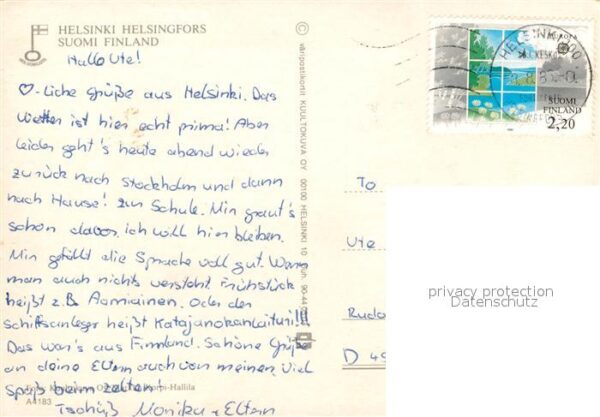 HELSINKI HELSINGFORS
SUOMI FINLAND
Hallo Ute!
♡-liche Grüße aus Helsinki. Das
Wetter ist hier echt prima! Aber
leider geht's heute abend wieder
zurück nach Stockholm und dann
nach Hause! zur Schule. Mir graut's
schon davor, ich will hier bleiben.
Mir gefällt die Sprache voll gut. Wenn
man auch nichts versteht Frühstück
heißt z.B Aamiainen. Oder der
Schiffsanleger heißt Katajanokanlaituri!!!
Das war's aus Finnland. Schöne Grüße
an deine Eltern auch von meinen. Viel
Spaß beim zelten!
Tschüß Monika + Eltern
A4183
© väripostikortit KUULTOKUVA OY 00100 HELSINKI 10
EUROPA
HELSINKI
SUOMI
FINLAND
2,20
To
Ute
Rudo
D 49
privacy protection
Datenschutz